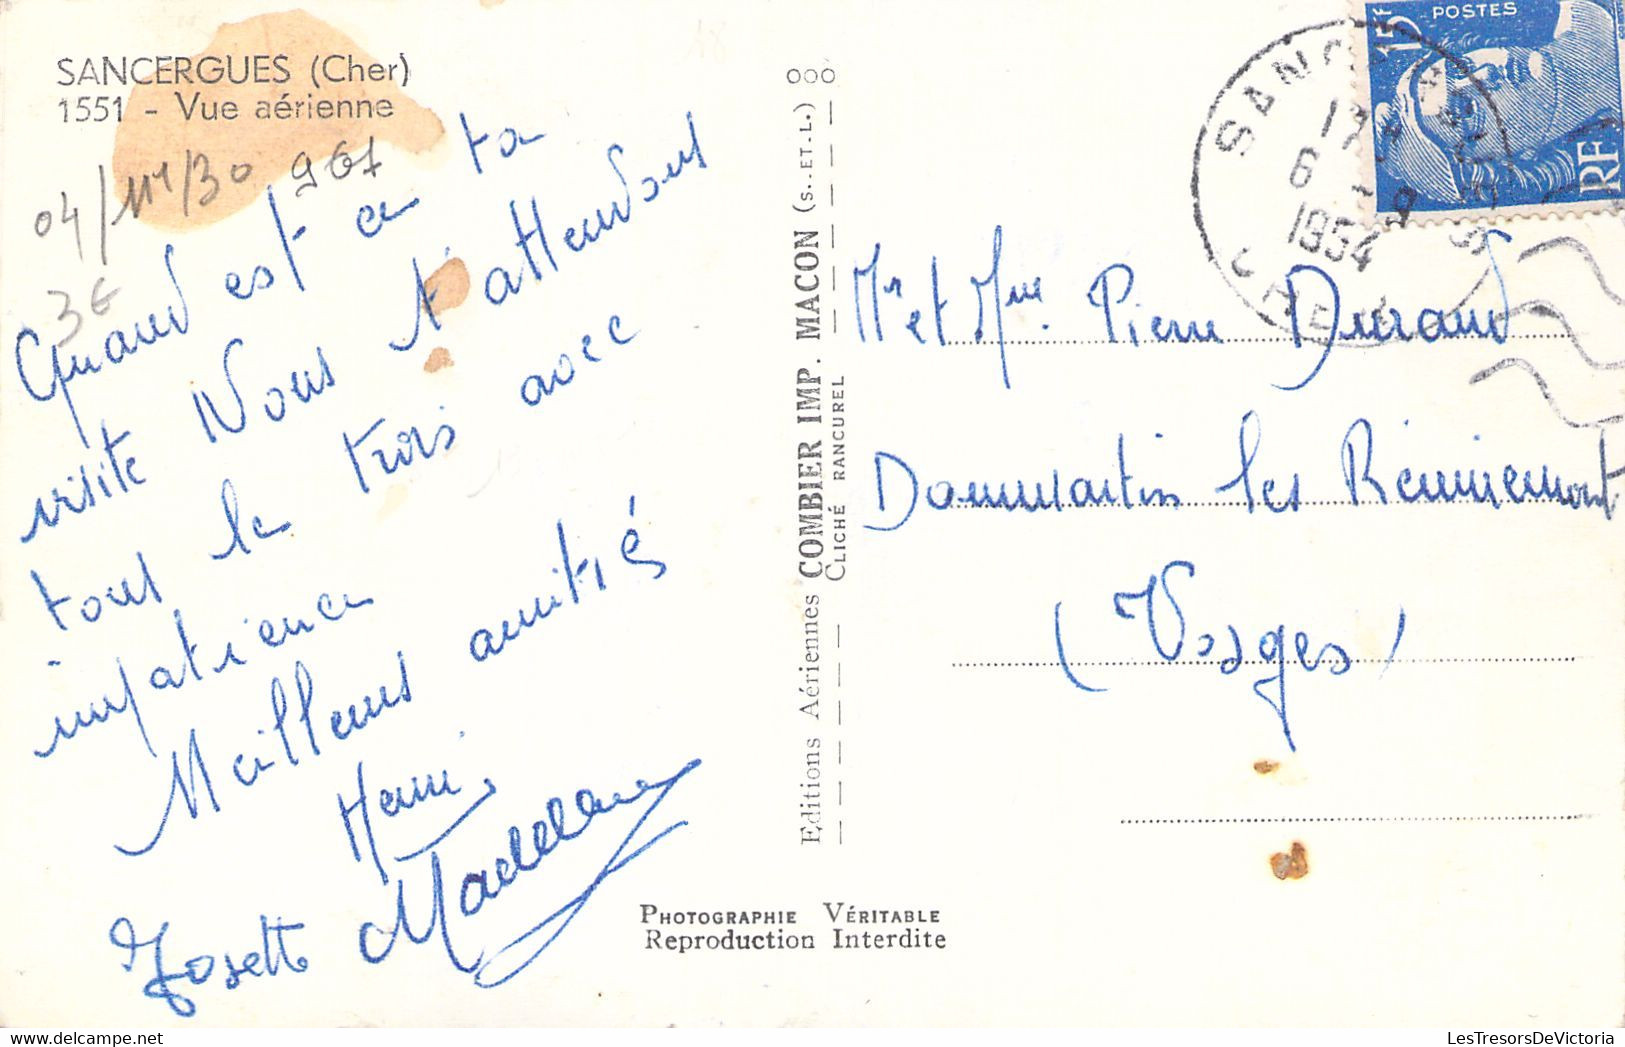 SANCERGUES (Cher)
1551 - Vue aérienne
04/111/30 961
3€
Quand est ce ta
visite Nous t'attendons
tous le trois avec
impatience
Meilleures amitiés
Henri
Josette Madeleine
Editions Aériennes COMBIER IMP. MACON (S.-ET-L.) 000
CLICHÉ RANCUREL
PHOTOGRAPHIE VÉRITABLE
Reproduction Interdite
15F POSTES
RF
SANCERGUES
17H
6 - 9
1954
CHER
Mr et Mme. Pierre Durand
Dommartin les Rémiremont
(Vosges)
LesTresorsDeVictoria